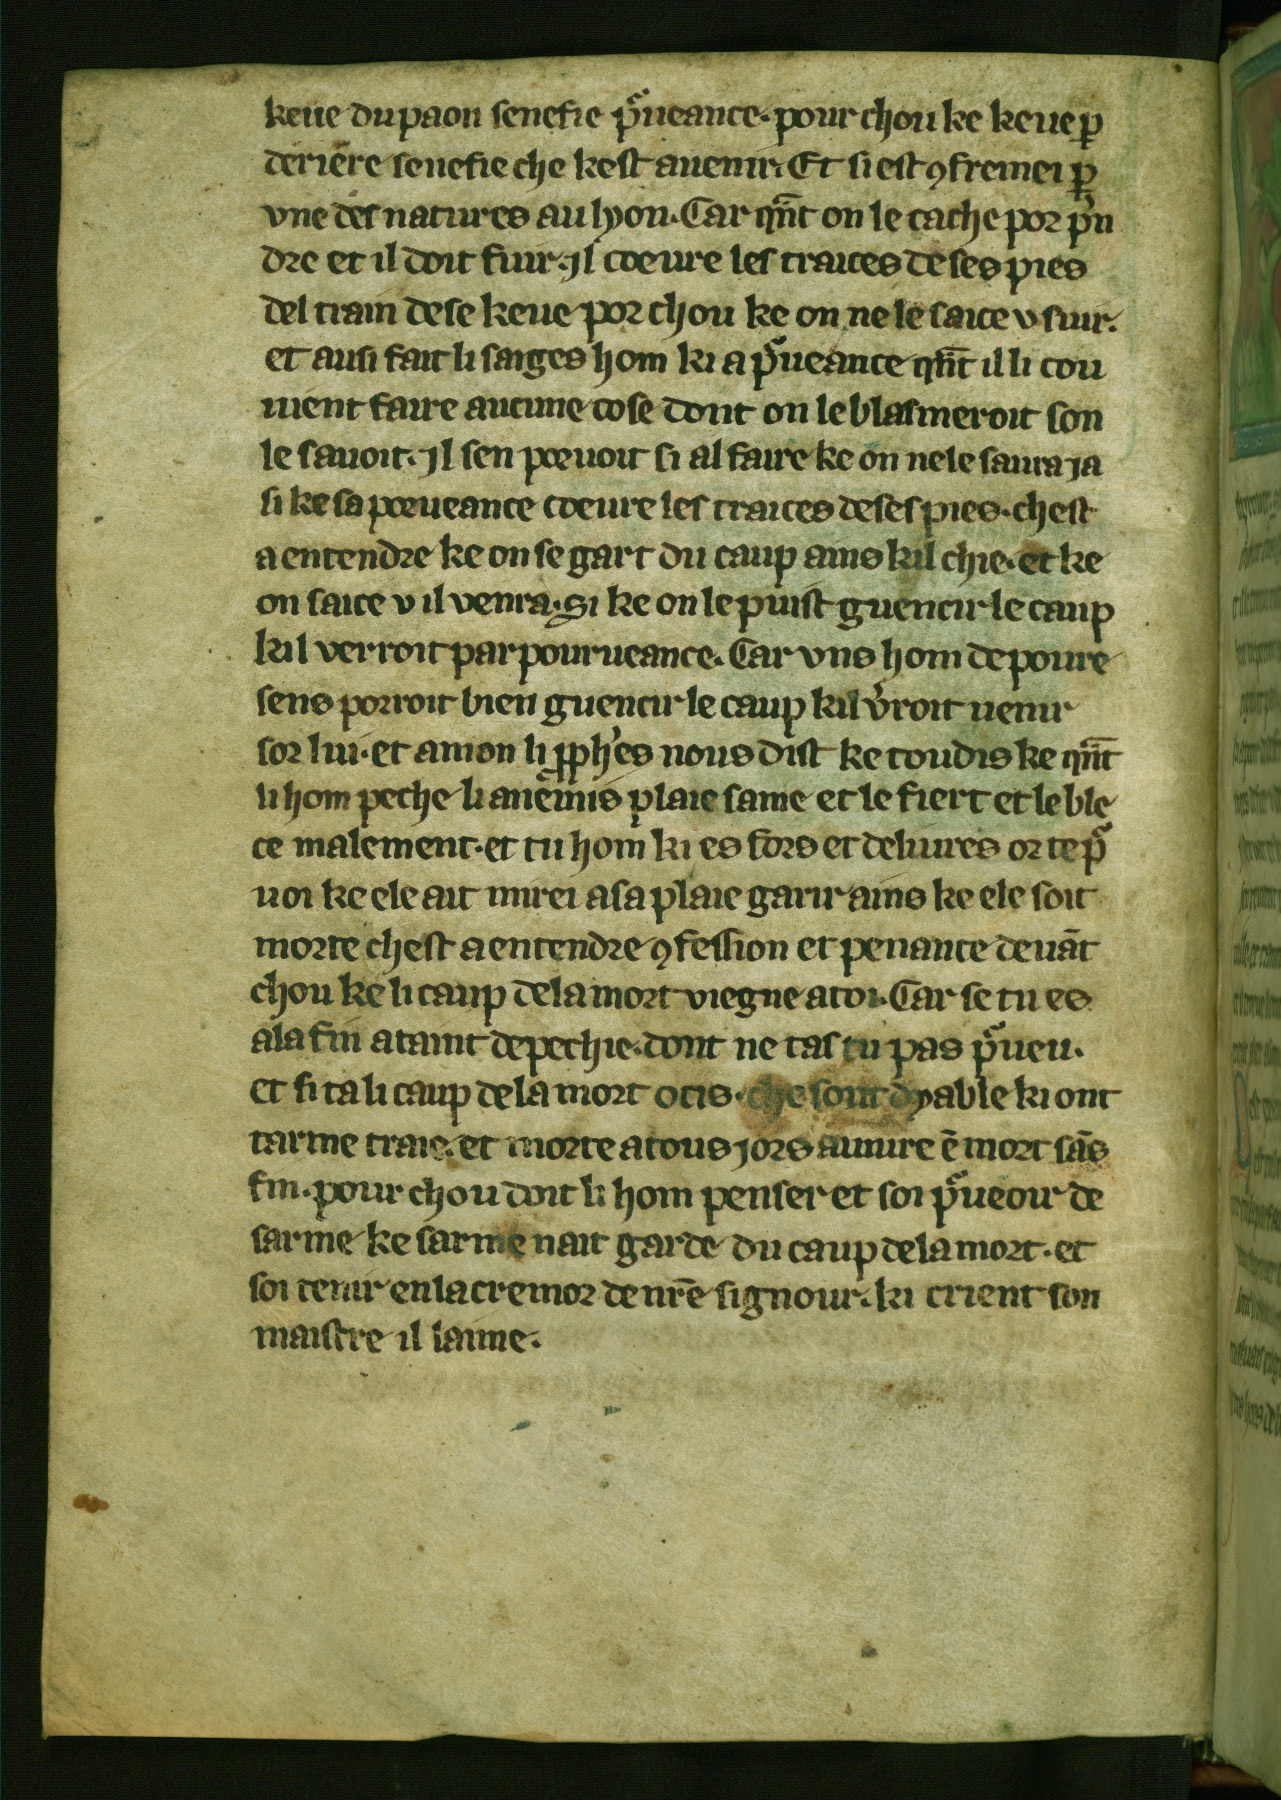 keue du paon senefie p̃ueance. pour chou ke keue ꝑ
deriere senefie che kest auenir. Et si est ꝯfremei ꝑ
vne des natures au lyon. Car qñt on le cache por p̃n
dre et il doit fuir. Jl coeure les traices de ses pies
del train de se keue por chou ke on ne le saice v siuir.
et ausi fait li saiges hom ki a p̃ueance qñt il li cou
uient faire aucune cose dont on le blasmeroit son
le sauoit. Jl sen porvoit si al faire ke on ne le saura ja
si ke sa porueance coeure les traices de ses pies. chest
a entendre ke on se gart du caup ains kil chie. et ke
on saice v il venra. Si ke on le puist guencir le caup
kil verroit par pourueance. Car vns hom de poure
sens porroit bien guencir le caup kil v̾roit uenir
sor lui. et amon li ꝓph̾es nous dist ke toudis ke qñt
li hom peche li anemis plaie same et le fiert et le ble
ce malement. et tu hom ki es fors et deliures or te p̃
uoi ke ele ait mirei a sa plaie garir ains ke ele soit
morte chest a entendre ꝯfession et penance deuāt
chou ke li caup de la mort viegne a toi. Car se tu es
a la fin ataint de pechie. dont ne tas tu pas p̃ueu.
et si ta li caup de la mort ocis. che sont dyable ki ont
tarme traie. et morte a tous jors au uiure ē mort sās
fin. pour chou doit li hom penser et soi p̃ueoir de
sarme ke sarme nait garde du caup de la mort. et
soi tenir en la cremor de nr̃e signour. ki crient son
maistre il laime.